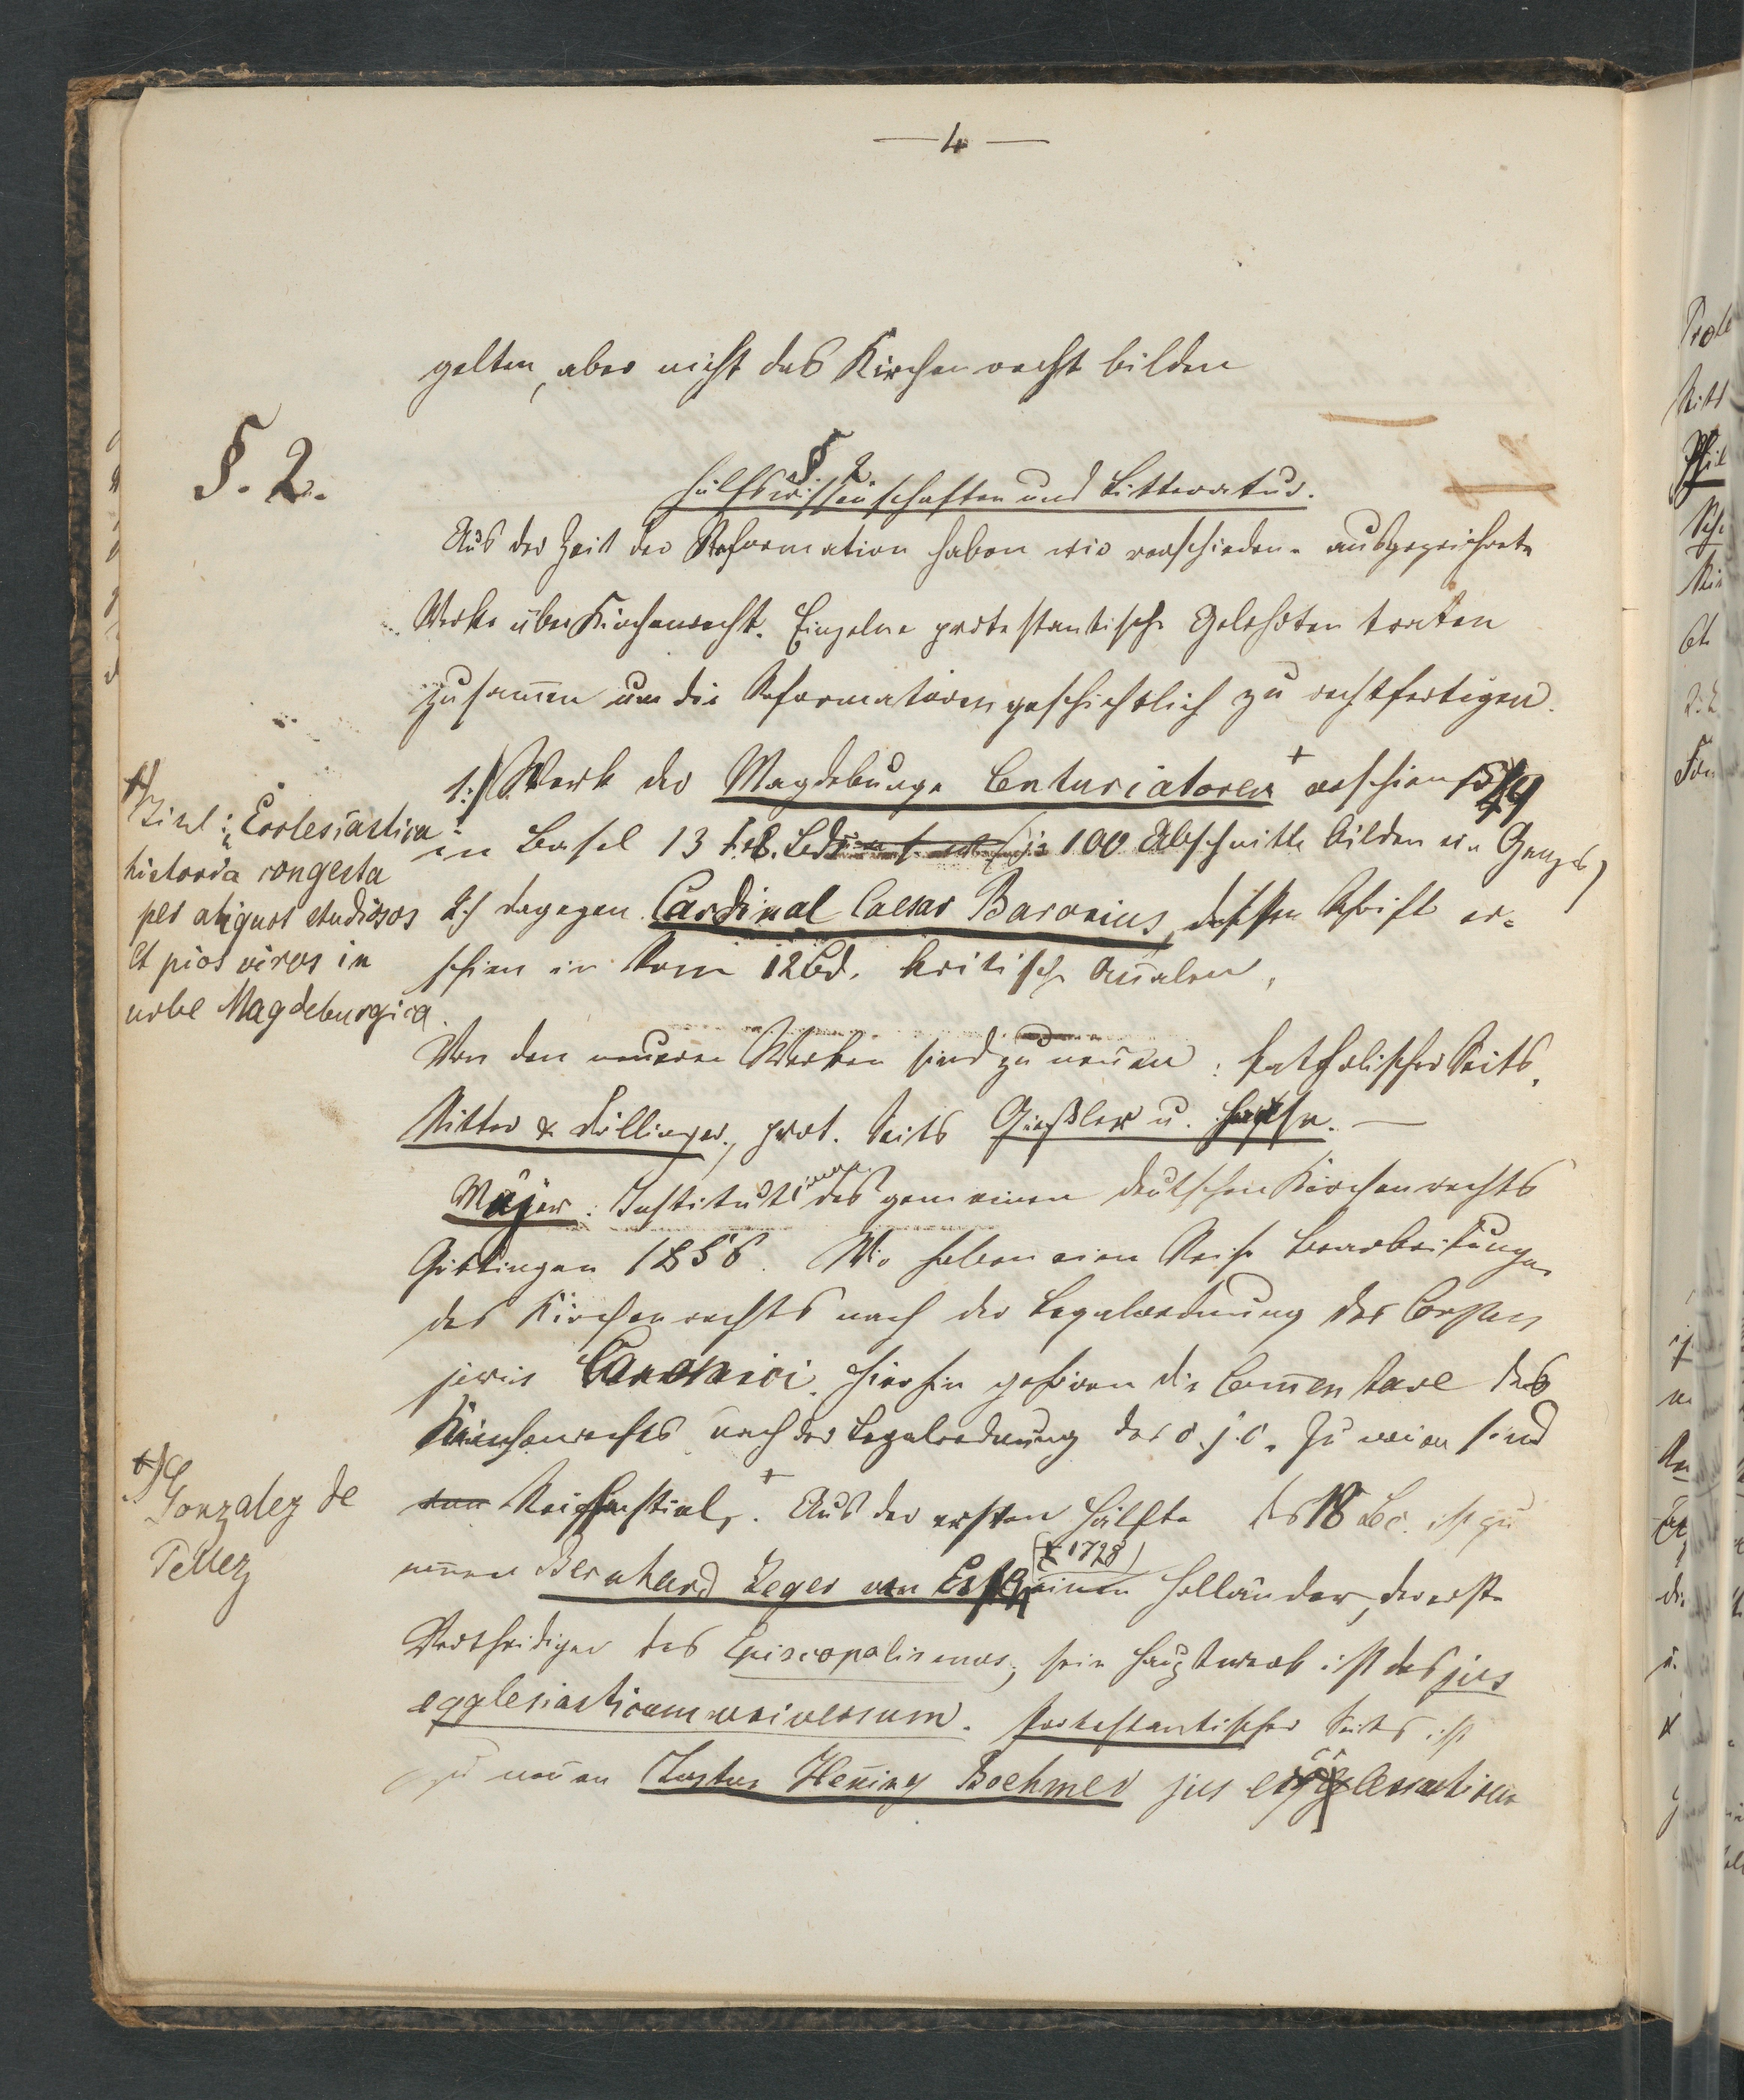 — 4 —
gelten, aber nicht das Kirchenrecht bilden
§. 2.
§ 2
Hülfswissenschaften und Litteratur.
Aus der Zeit der Reformation haben wir verschiedene ausgezeichnete
Werke über Kirchenrecht. Einzelne protestantische Gelehrten traten
zusammen um die Reformatoren geschichtlich zu rechtfertigen.
1:) Werk der Magdeburger Centuriatoren + erschien 1559
in Basel 13 Bde je 100 Abschnitte bilden ein Ganzes)
2:) dagegen Cardinal Caesar Baronius, dessen Schrift er-
schien in Rom 12 Bd. kritische Annalen,
+) Titel: Ecclesiastica
historia congesta
per aliquot studiosos
et pios viros in
urbe Magdeburgica.
Von den neueren Werken sind zu nennen: katholischer Seits,
Ritter & Döllinger, prot. Seits Gießler u. Hase. —
Mejer: Institutionen des gemeinen deutschen Kirchenrechts
Göttingen 1856. Wir haben eine Reihe Bearbeitungen
des Kirchenrechts nach der Legalordnung des Corpus
juris Canonici. Hierhin gehören die Commentare des
Kirchenrechts nach der Legalordnung des c. j. c. Zu nennen sind
Reiffenstuel, +. Aus der ersten Hälfte des 18 Sec. ist zu
+) Gonzalez de
Tellez
nennen Bernhard Zeger van Espen (+ 1728) einen Holländer, der erste
Vertheidiger des Episcopalismus, sein Hauptwerk ist das jus
egglesiasticum universum. Protestantischer Seits ist
zu nennen Justus Henning Boehmer jus ecclesiasticum